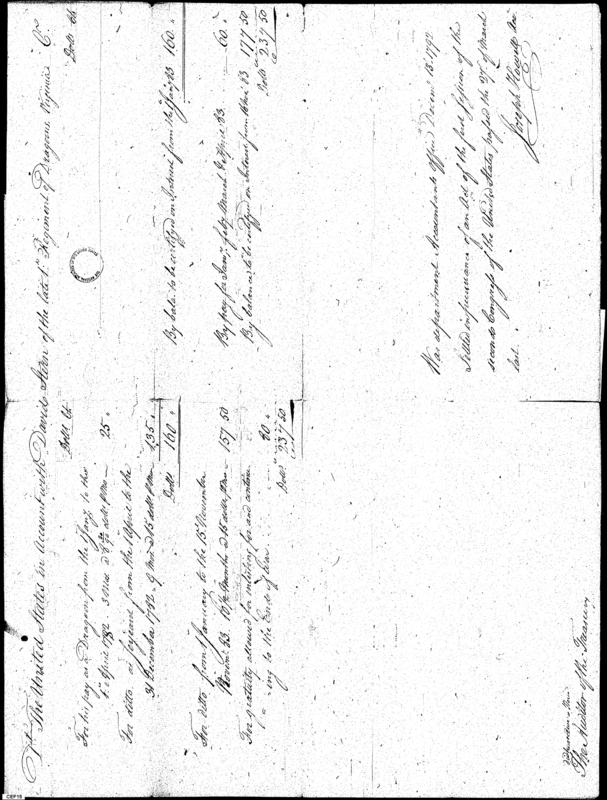 Dr. The United States in Account with David Stern of the late 1st Regiment of Dragoons Virginia Cr.
Dolls Cts
For his pay as a Dragoon from the 1st Jany. to the
1st April 1782 3 Mos. @ 8 ⅓ dolls ⅌ Mo — 25 "
For ditto as Serjeant from the 1st April to the
31 December 1782. 9 Mos @ 15 dolls ⅌ Mo — 135 "
Dolls 160 "
For ditto from 1st January to the 15th November
10½ Months @ 15 dolls ⅌ Mo — 157 50
For gratuity allowed for enlisting for and continu
= ing to the Ende of War 80 "
Dolls 237 50
Dolls Cts
By balce. to be certifyed on Interest from the 1st Jany 83 160 "
By pay for Jany. Feby March & April 83. 60 "
By balance to be certifyed on Interest from 83 177 50
Dolls 237 50
War department Accountants office Decem. 13. 1792
Settled in pursuance of an Act of the first Session of the
second Congress of the United States, passed the 27 of March
last.
Joseph Howell Acct
The Auditor of the Treasury
CBP15